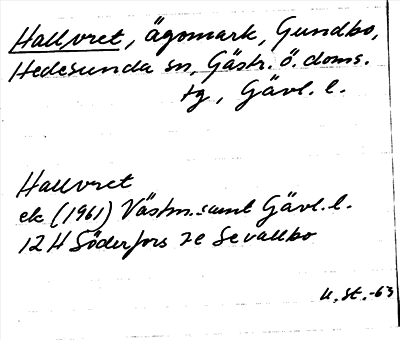 Hallvret, ägomark, Gundbo,
Hedesunda sn, Gästr. ö. doms.
tg, Gävl. l.
Hallvret
ek (1961) Västm. samt Gävl. l.
12 H Söderfors 7e Sevallbo
u. st. -63